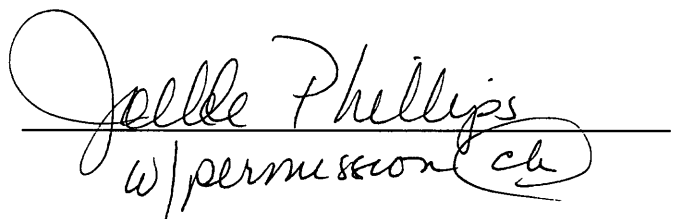 Joelle Phillips
w/permission ch